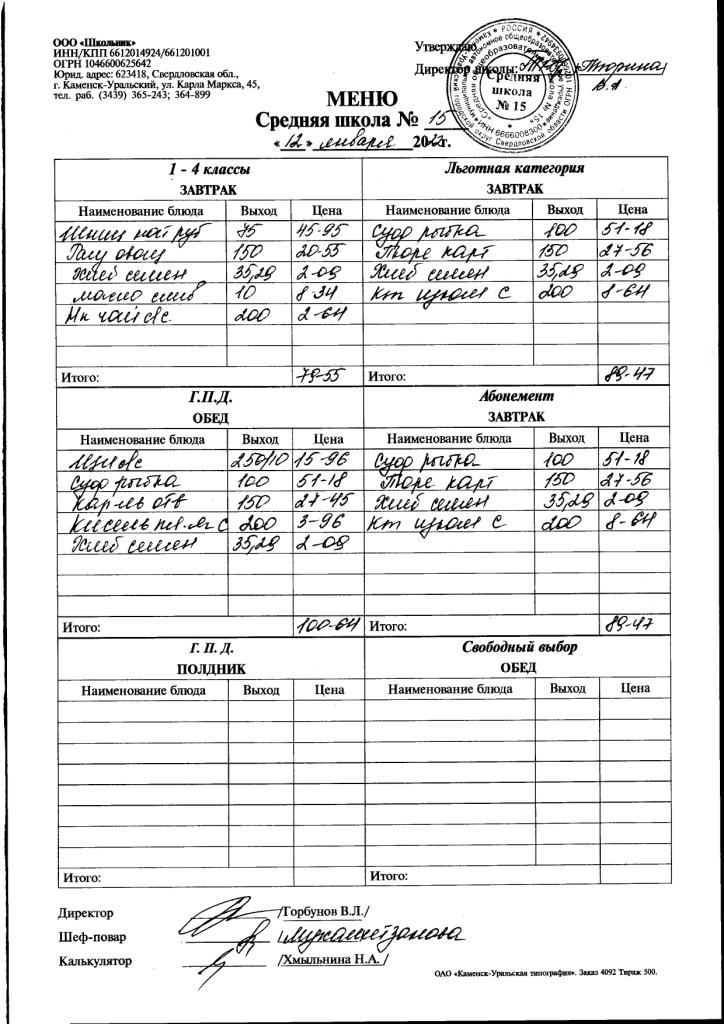 ООО «Школьник»
ИНН/КПП 6612014924/661201001
ОГРН 1046600625642
Юрид. адрес: 623418, Свердловская обл.,
г. Каменск-Уральский, ул. Карла Маркса, 45,
тел. раб. (3439) 365-243; 364-899
Утверждаю
Директор школы:
В.А.
Средняя
школа
№ 15
МЕНЮ
Средняя школа № 15
« 12 » января г.
1 - 4 классы
ЗАВТРАК
Наименование блюда Выход Цена
75 45-95
Рагу овощ 150 20-55
Хлеб семен 35,29 2-09
масло слив 10 8-34
чай с/с 200 2-64
Итого: 79-55
Льготная категория
ЗАВТРАК
Наименование блюда Выход Цена
Суфр рыбка 100 51-18
Пюре карт 150 27-56
Хлеб семен 35,29 2-09
Кт изюм С 200 8-64
Итого: 89-47
Г.П.Д.
ОБЕД
Наименование блюда Выход Цена
Щи с/с 250/10 15-96
Суфр рыбка 100 51-18
Кар-ль отв 150 27-45
Кисель пл.яг С 200 3-96
Хлеб семен 35,29 2-09
Итого: 100-64
Абонемент
ЗАВТРАК
Наименование блюда Выход Цена
Суфр рыбка 100 51-18
Пюре карт 150 27-56
Хлеб семен 35,29 2-09
Кт изюм С 200 8-64
Итого: 89-47
Г. П. Д.
ПОЛДНИК
Наименование блюда Выход Цена
Итого:
Свободный выбор
ОБЕД
Наименование блюда Выход Цена
Итого:
Директор /Горбунов В.Л./
Шеф-повар /Мухаметзанова
Калькулятор /Хмыльнина Н.А. /
ОАО «Каменск-Уральская типография». Заказ 4092 Тираж 500.